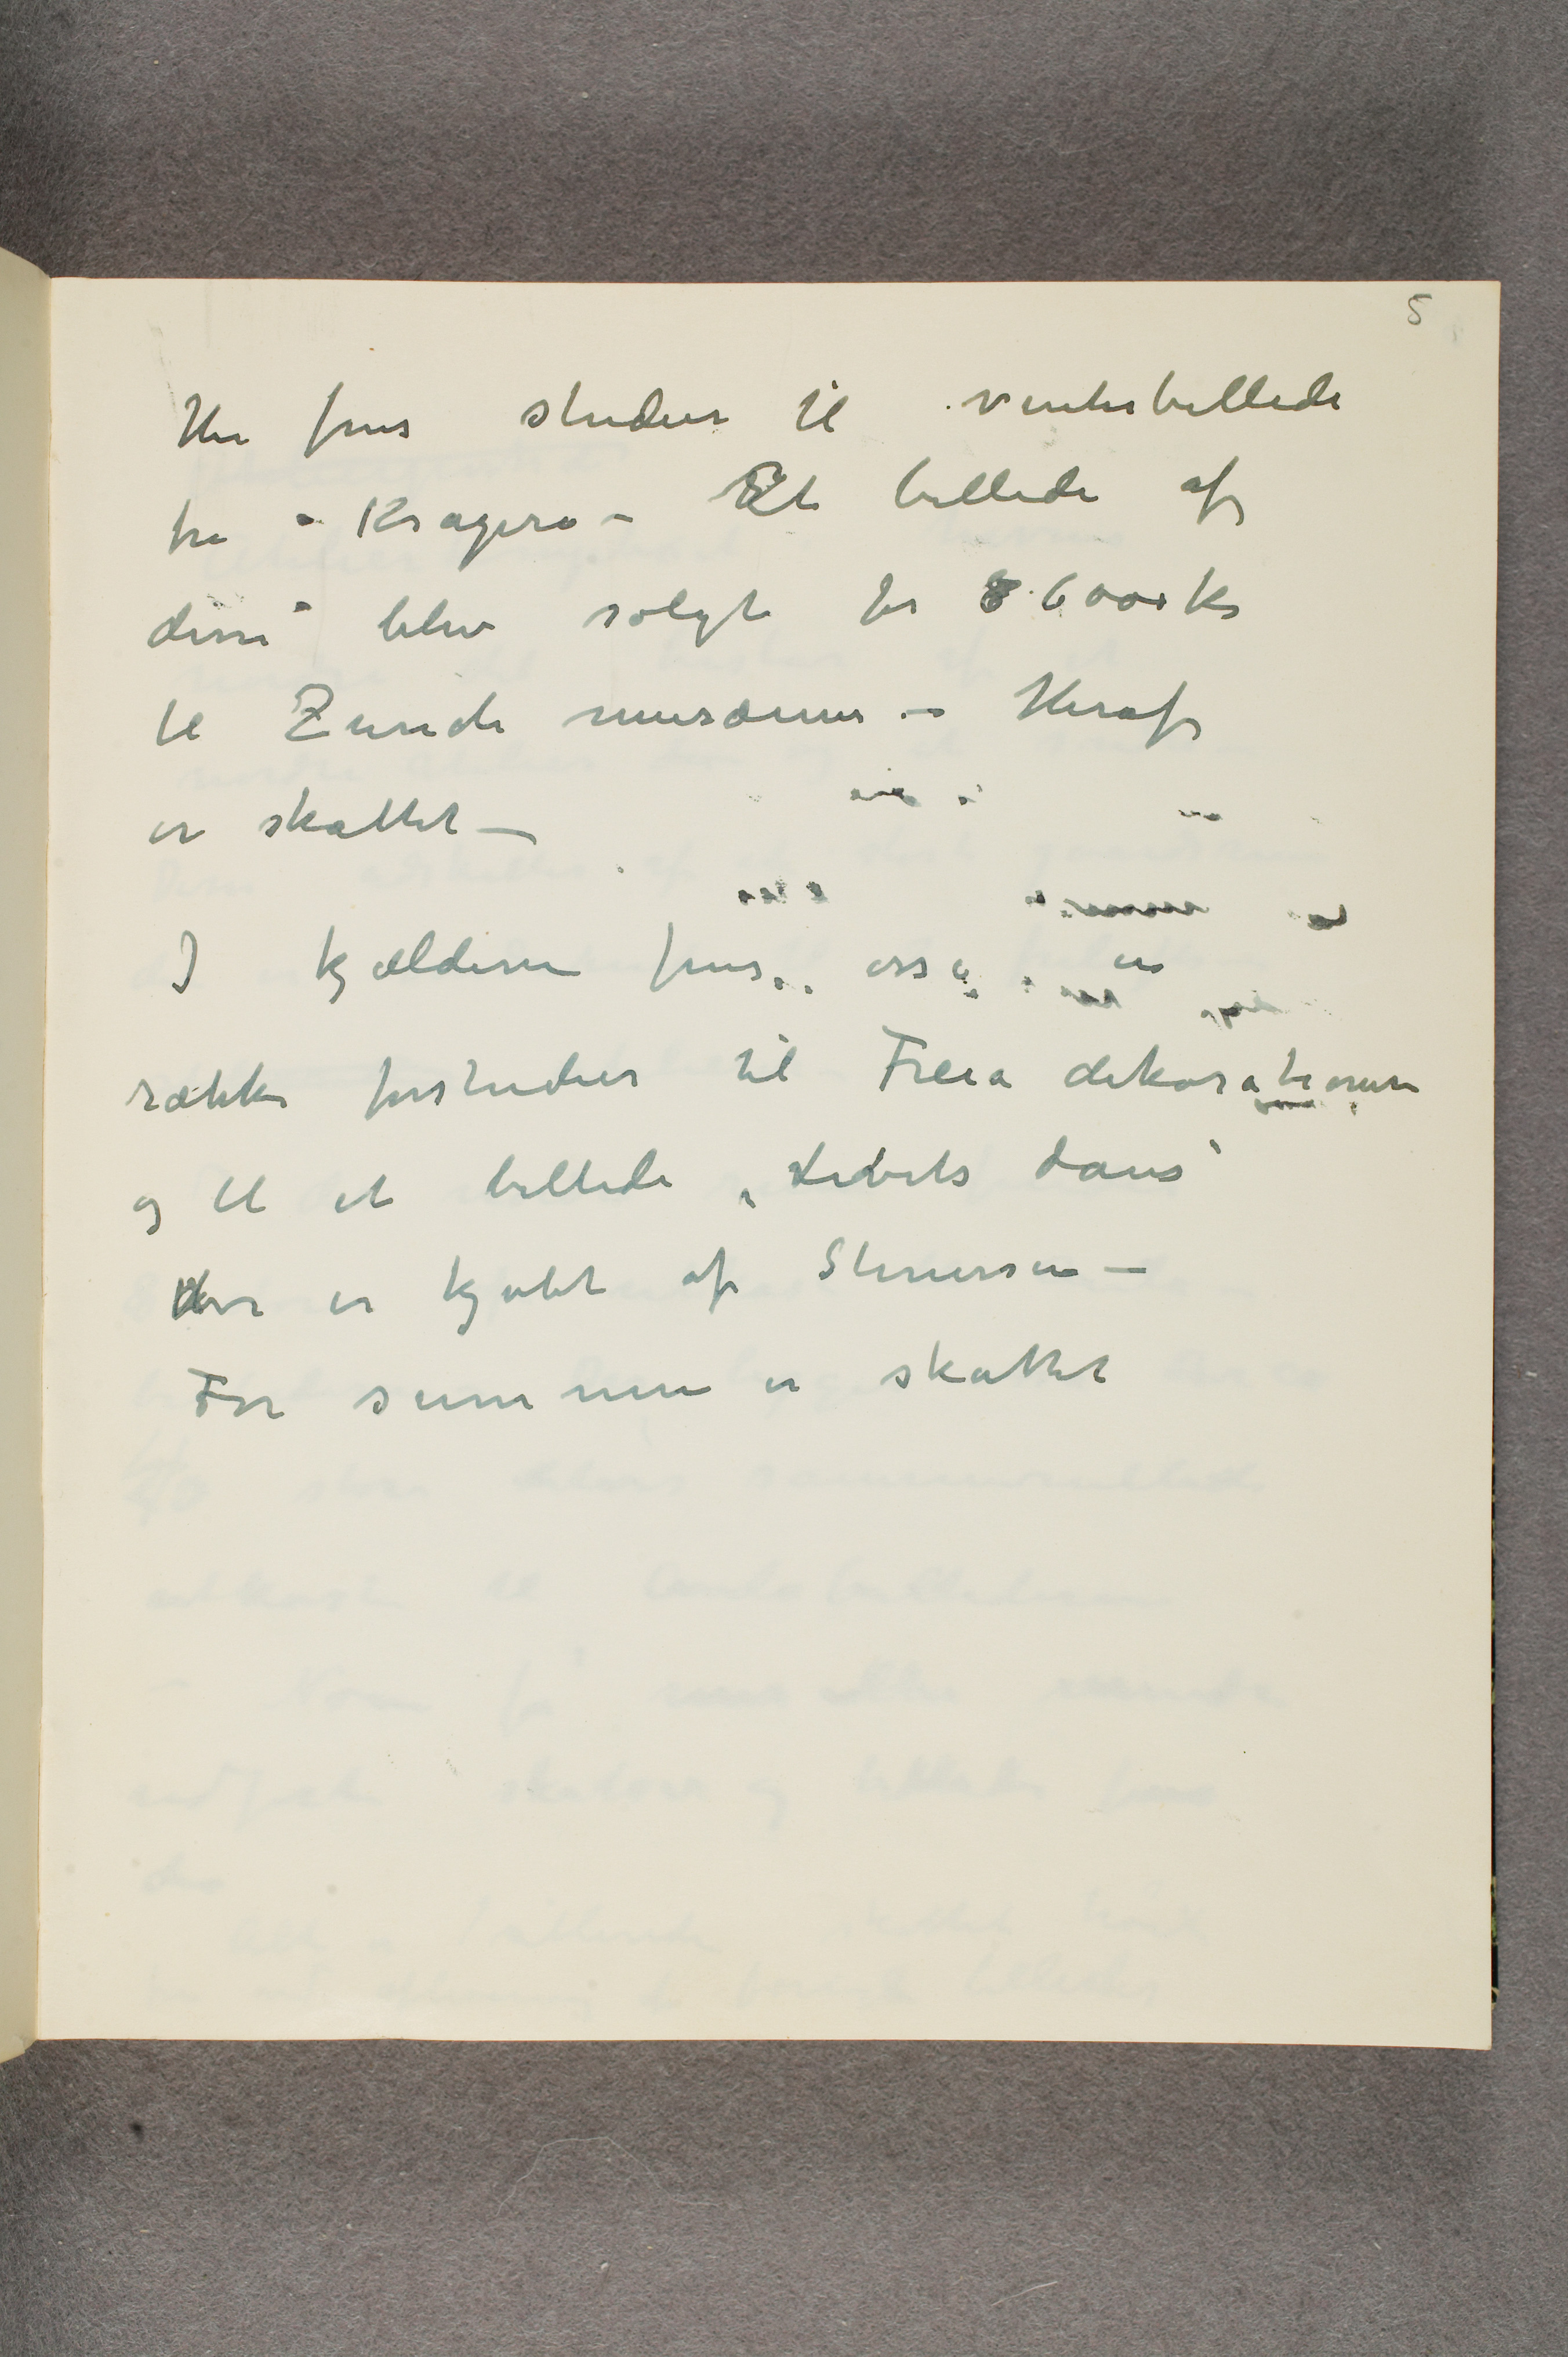 5
Her fins studier til vinterbillede
fra Kragerø – Et billede af
disse blev solgt for 6000 kr
til Zurich musæum – Heraf
er skattet –
I kjælderen fins også en
række forstudier til Freia dekorationen
og til et billede „Livets dans"
der er kjøbt af Stenersen –
For summen er skattet